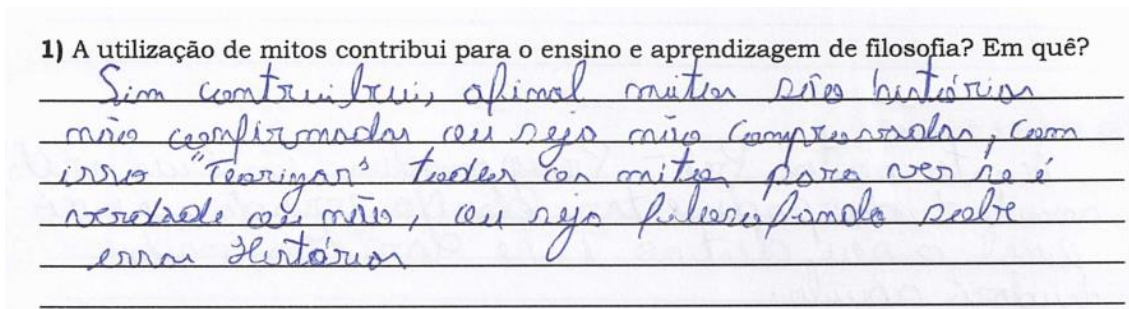 1) A utilização de mitos contribui para o ensino e aprendizagem de filosofia? Em quê?
Sim contruibrui, afinal mitos são histórias
não confirmadas ou seja não comprovadas, com
isso "Teorizar" todos os mitos para ver se é
verdade ou não, ou seja filosofando sobre
essas Histórias